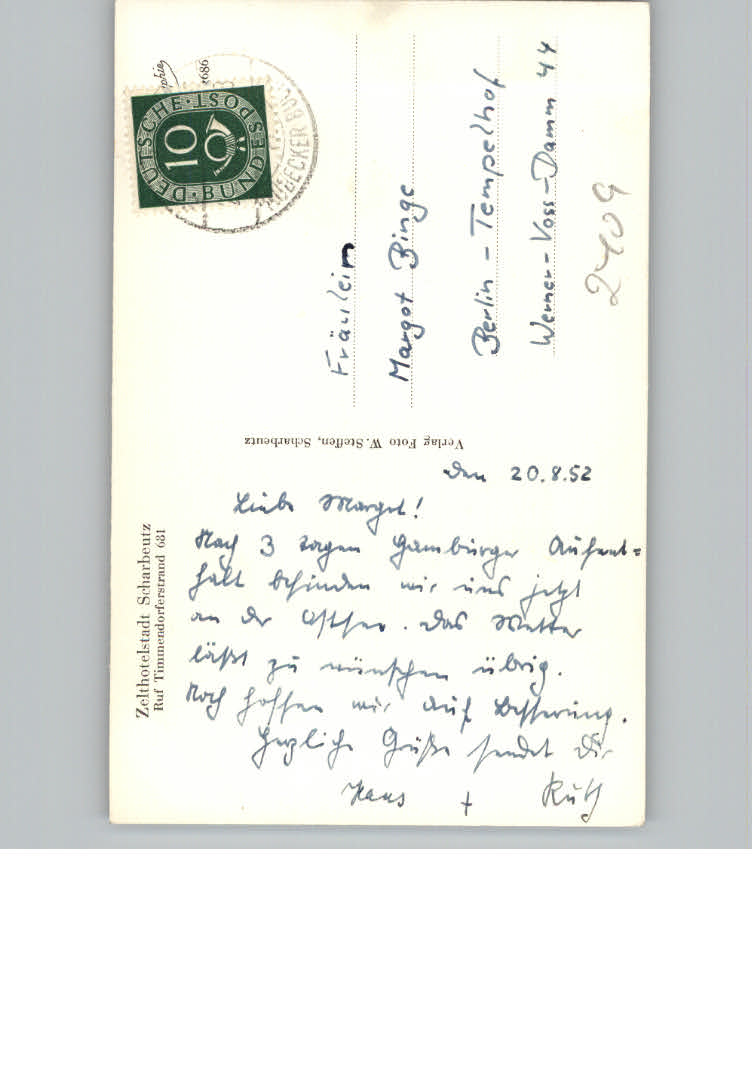 Zelthotelstadt Scharbeutz
Ruf Timmendorferstrand 681
Den 20.8.52
Liebe Margot!
Nach 3 tagen Hamburger Aufent=
halt befinden wir uns jetzt
an der Ostsee. Das Wetter
läßt zu wünschen übrig.
Noch hoffen wir auf Besserung.
Herzliche Grüße sendet Dir
Hans + Ruth
Verlag Foto W. Steffen, Scharbeutz
DEUTSCHE BUNDESPOST
10
Fräulein
Margot Binge
Berlin - Tempelhof
Werner-Voss-Damm 44
2409